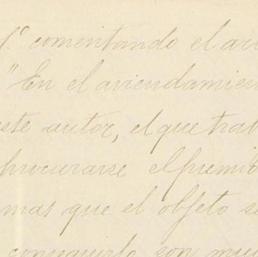 1º comentando el ar
"En el arrendamien
este autor, el que trab
procurarse el premio
mas que el objeto se
conseguirlo son mu